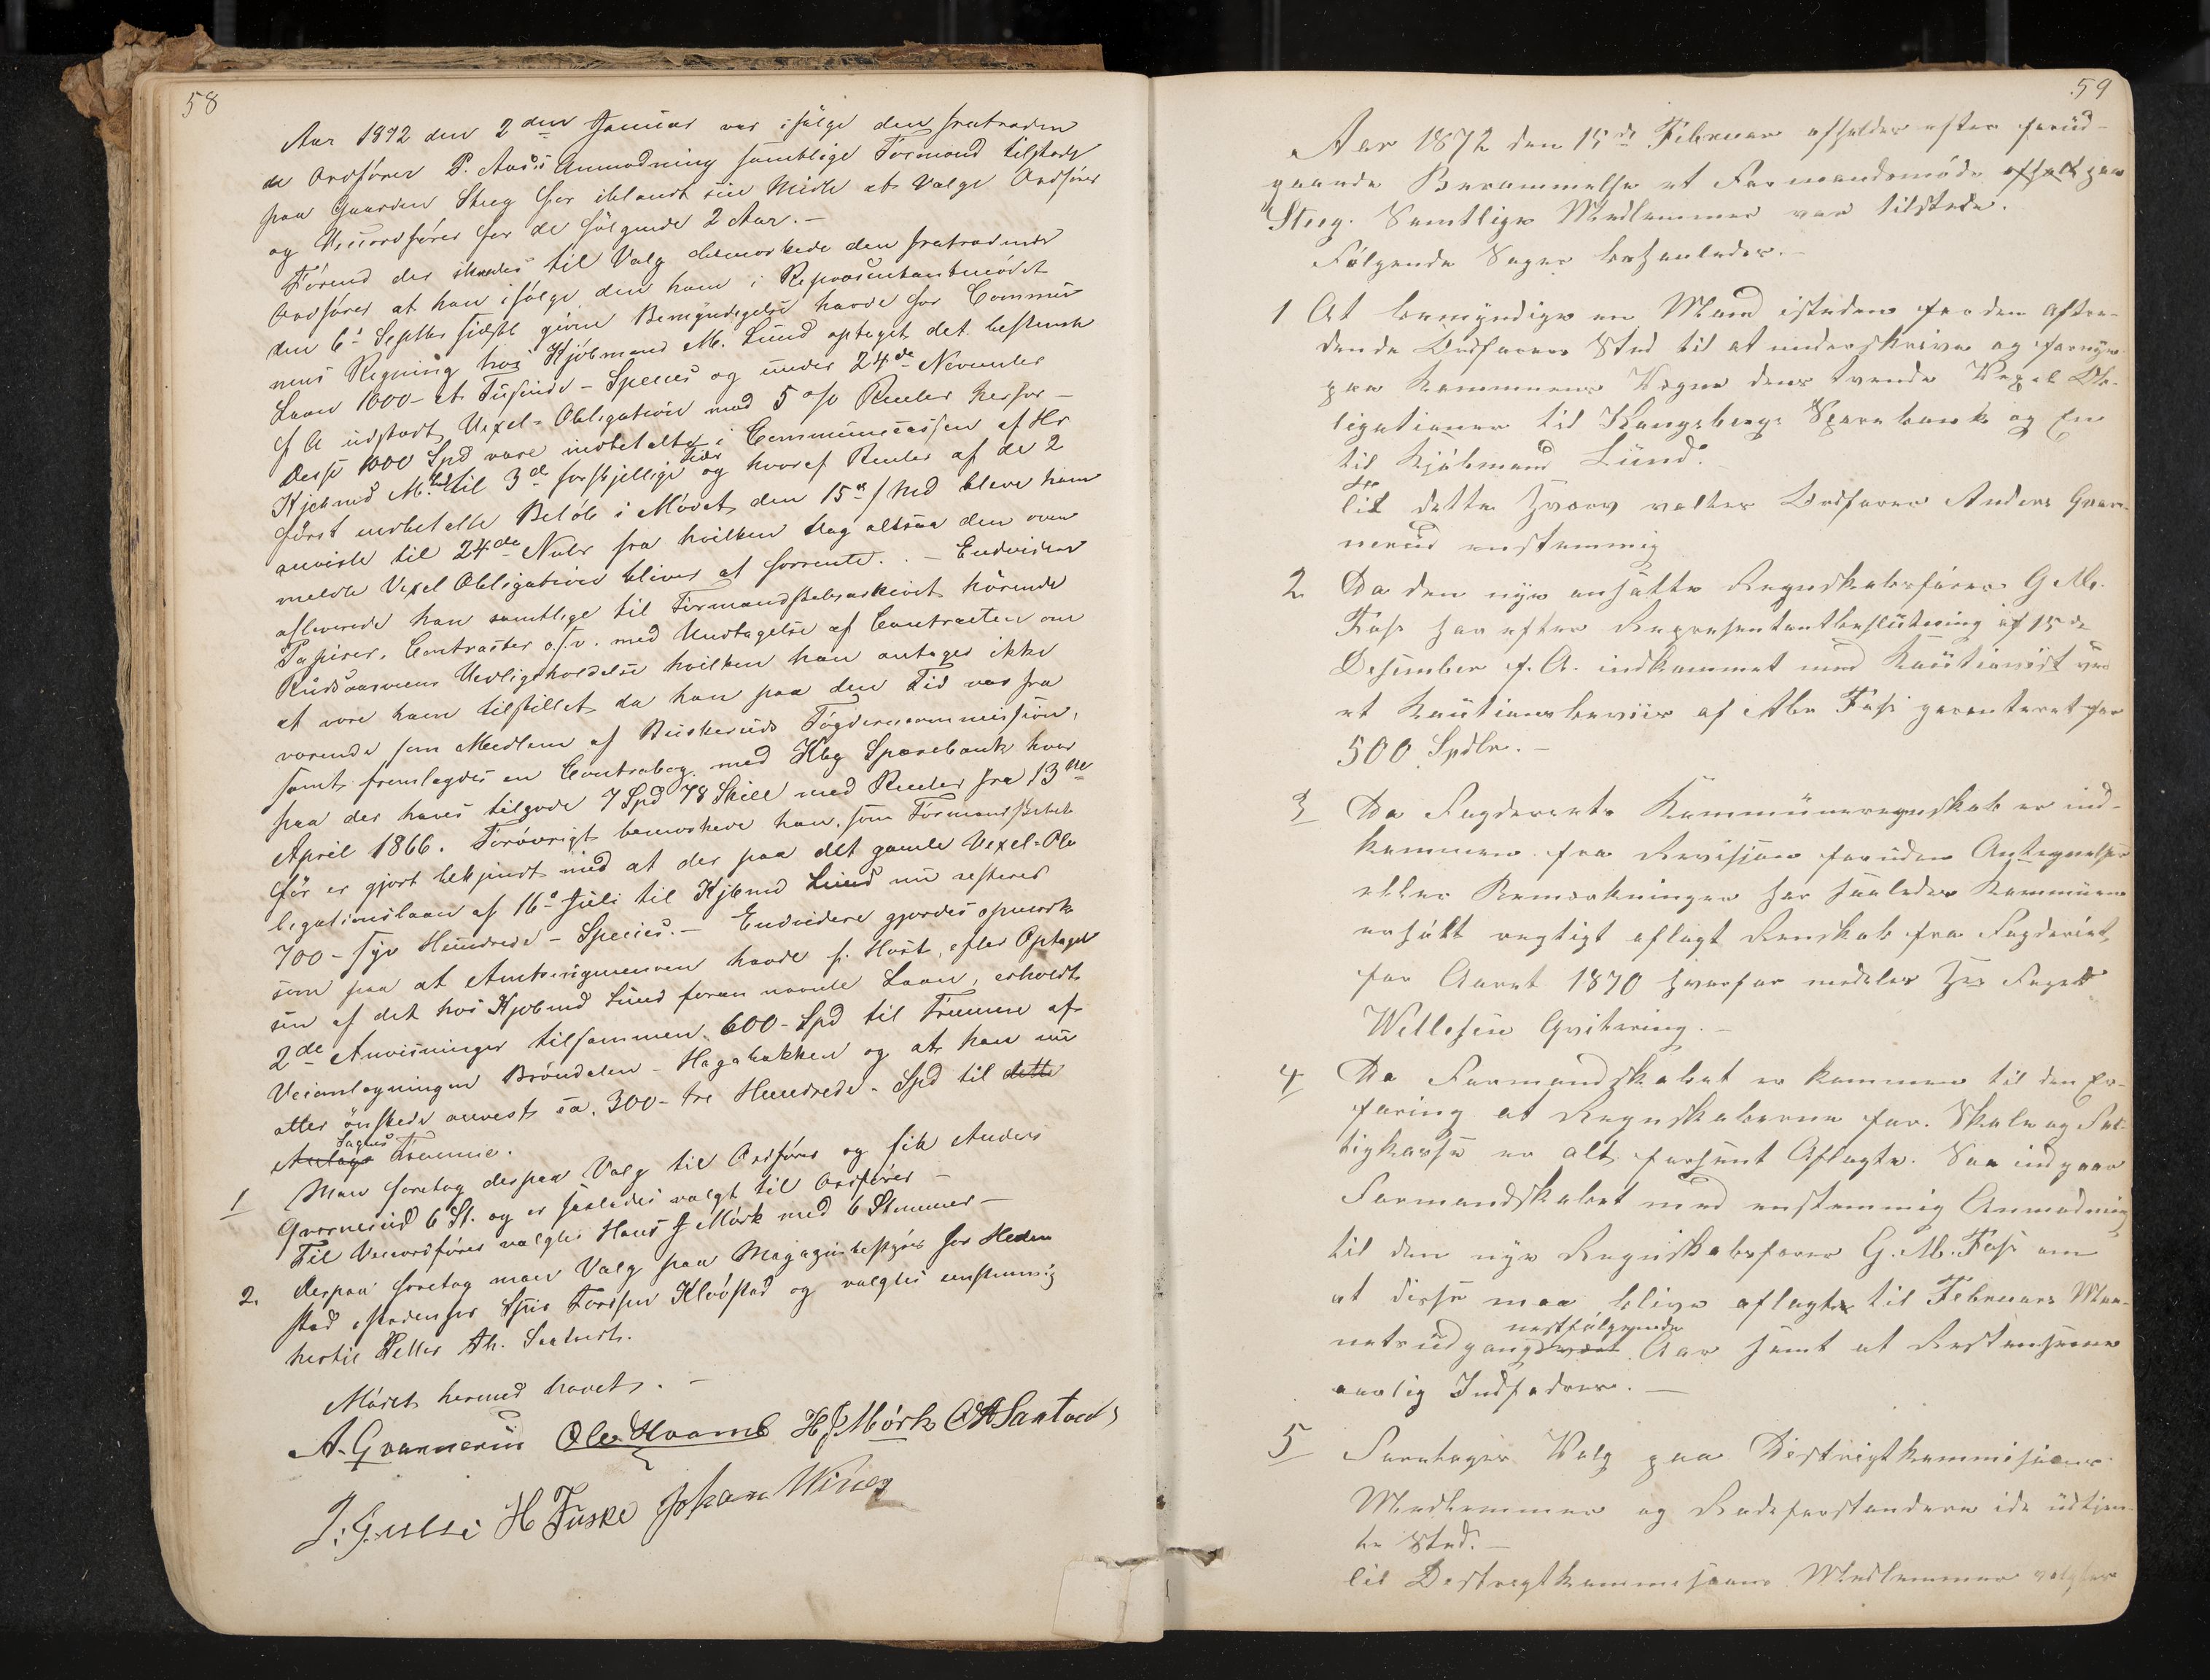 58
Aar 1872 den 2den Januar var ifølge den fratraden
de Ordfører P. Aas's Anmodning samtlige Formænd tilstede
paa Gaarden Steg for iblandt sin Midte at vælge Ordfører
og Viceordfører for de følgende 2 Aar. –
Førend der skredes til Valg bemærkede den fratrædende
Ordfører at han ifølge den ham i Repræsentantmødet
den 6te Septbr sidstl. givne Bemyndigelse havde for Commu
nens Regning hos Kjøbmand M. Lund optaget det bestemte
Laan 1000 – et Tusinde – Species og under 24de November
f A udstædt Vexel-Obligation med 5 o/o Renter herfor –
Disse 1000 Spd vare indbetalte i Communecassen af Hr
Kjøbmd M. Lund til 3de forskjellige Tider og hvoraf Renter af de 2
først indbetalte Beløb i Mødet den 15de f Md bleve ham
anviste til 24de Nvbr fra hvilken Dag altsaa den oven
meldte Vexel Obligation bliver at forrente. – Endvidere
afleverede han samtlige til Formandskabsarkivet hørende
Papirer, Contracter o.s.v. med Undtagelse af Contracten om
Vedligeholdelse hvilken han antager ikke
at være ham tilstillet da han paa den Tid var fra
værende som Medlem af Buskeruds Fogdericommission,
samt fremlagdes en Contrabog med Kbg Sparebank hvor
paa der haves tilgode 7 Spd 78 Skill med Renter fra 13de
April 1866. Forøvrigt bemærkede han, som Formandskabet
før er gjort bekjendt med at der paa det gamle Vexel-Ob
ligationslaan af 16de Juli til Kjøbmd Lund nu resterer
700 – syv Hundrede – Species. – Endvidere gjordes opmærk
som paa at Amtsingeniøren havde f. Høst, efter Optagel
sen af det hos Kjøbmd Lund foran nævnte Laan, erholdt
2de Anvisninger tilsammen 600 – Spd til Fremme af
Veianlægningen Brøndalen – Hagabakken og at han nu
atter ønskede anvist ca. 300 – tre Hundrede – Spd til dette
Anlægs Sagens Fremme.
1 Man foretog derpaa Valg til Ordfører og fik Anders
Qvernerud 6 St. og er saaledes valgt til Ordfører –
Til Viceordfører valgtes Hans J Mørk med 6 Stemmer –
2. Derpaa foretog man Valg paa Magazinbestyrer for Heden
stad istedenfor Tordsen Kløvstad og valgtes enstemmig
hertil Th. Saatvedt.
Mødet hermed hævet. –
A. Qvernerud Ole Hvamb H J Mørk
J: Gulli H Fuske Johan Wiig
59
Aar 1872 den 15de Februar afholdes efter forud-
gaaende Berammelse et Formandsmøde afholdt paa
Steg. Samtlige Medlemmer var tilstede.
Følgende Sager behandledes. –
1 At bemyndige en Mand isteden for den aftræ-
dende Ordførers Sted til at underskrive og fornye
paa Kommunens Vegne dens tvende Vexel Ob-
ligationer til Kongsbergs Sparebank og En
til Kjøbmand Lund.
til dette Hverv valtes Ordfører Anders Qver-
nerud enstemmig
2 Da den nye ansatte Regnskabsfører G M.
Foss har efter Representantbeslutning af 15de
Desember f. A. indkommet med Kautionist ved
et Kautionsbeviis af Abr Foss garanteret for
500 Spdlr. –
3 Da Fogderiets Kommuneregnskab er ind-
kommen fra Revisjon foruden Antegnelser
eller Bemærkninger har saaledes Kommunen
ansatt regtigt aflagt Renskab fra Fogderiet,
for Aaret 1870 hvorfor medeles Hr Foged
Wellesen Qvitering. –
4 Da Formandskabet er kommen til den Er-
faring at Regnskaberne for Skole og Fat-
tigkasse er alt forsent Aflagte. Saa indgaar
Formandskabet med enstemmig Anmodning
til den nye Regnskabsfører G. M. Foss om
at disse maa blive aflagte til Februar Maa-
nets udgang hvert nestfølgende Aar samt at Restanserne
aarlig Indfodres. –
5 Foretoges Valg paa Distrigtkommisions
Medlemmer og Rodeforstandere i de udtjen-
te Sted. –
til Distrigtkommisions Medlemmer valgtes